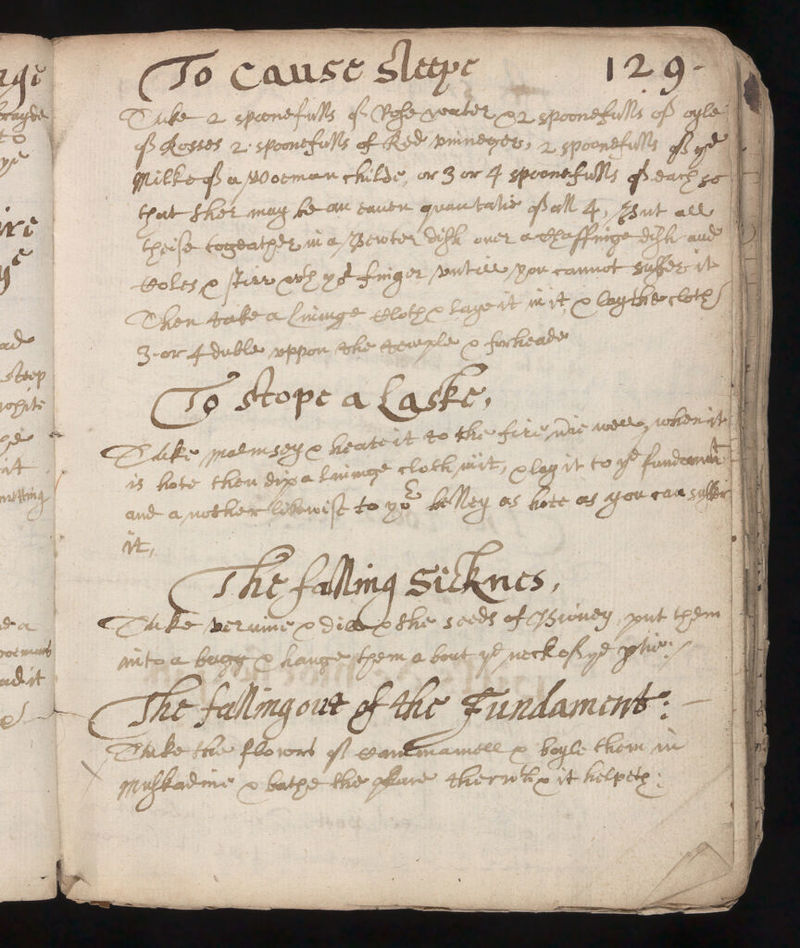 To Cause Sleepe 129.
Take 2 spoonefulls of Rose water & 2 spoonefulls of oyle
of Rosses 2 spoonefulls of Red vinneger, 2 spoonefulls of ye
Milke of a Woeman childe, or 3 or 4 spoonefulls of each so
that ther may be an eauen quantatie of all 4, Put all
theise togeather in a Pewter dish ouer a Chaffinge dish and
Coles & stirr wth yor finger vntill you cannot suffer it
Then take a lininge Cloth & laye it in it, & lay the cloth
3 or 4 duble vppon the temple & forheade
To stope a Laske,
Take malmsey & heate it to the fire well, when it
is hote then dip a lininge cloth in it, & lay it to ye fundament
and a nother likewise to yor belley as hote as you can suffer
it,
The falling Sicknes,
Take veruine & dill & the seeds of Pioney, put them
into a bagg & hange them a bout ye neck of ye
The falling out of the Fundament:
Take the flowers of Cammamell & boyle them in
Muskadine & bathe the place therwth & it helpeth: